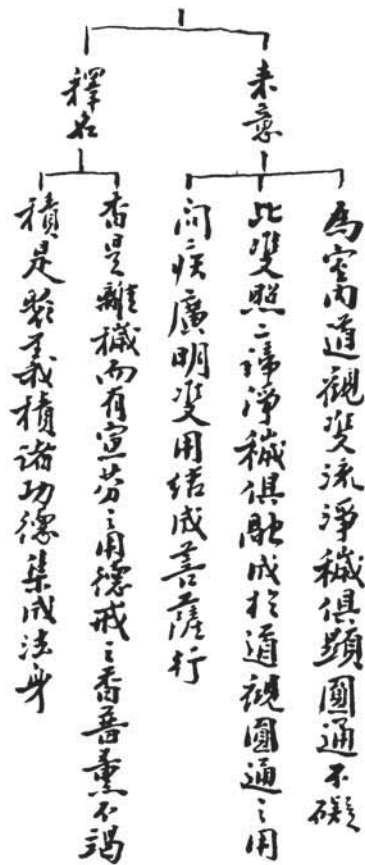 來意
為室內道觀雙流淨穢俱顯圓通不礙
此雙照二諦淨穢俱融成於道觀圓通之用
問疾廣明雙用結成菩薩行
釋名
香是離穢而有宣芬之用德戒之香普熏不竭
積是聚義積諸功德集成法身